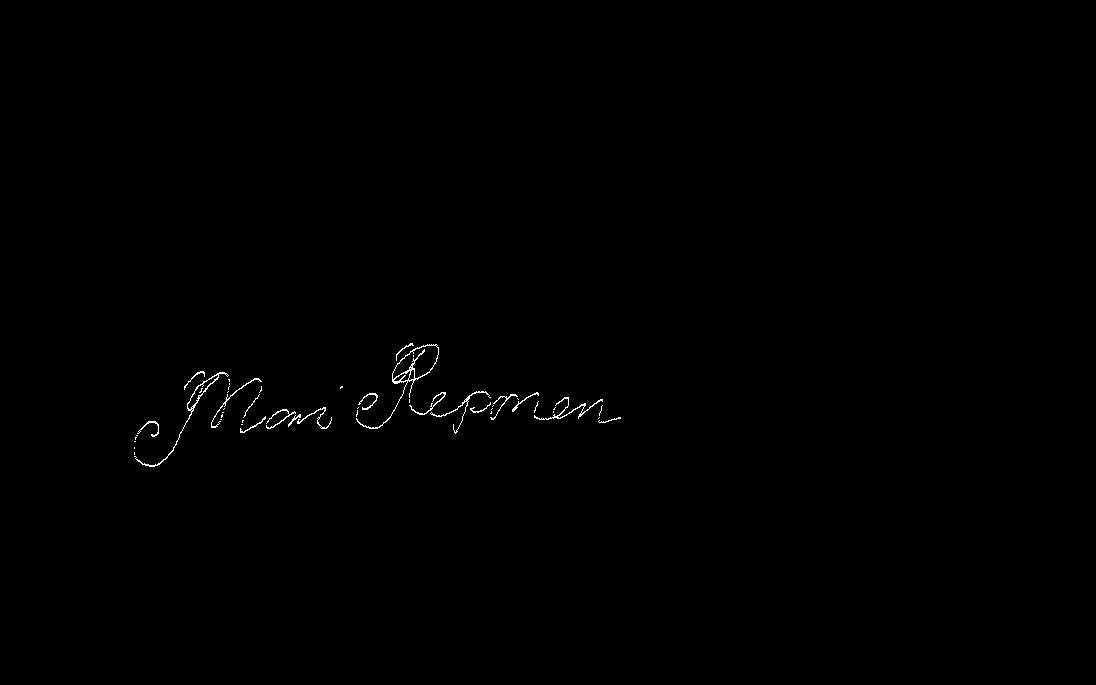 Mari Reponen